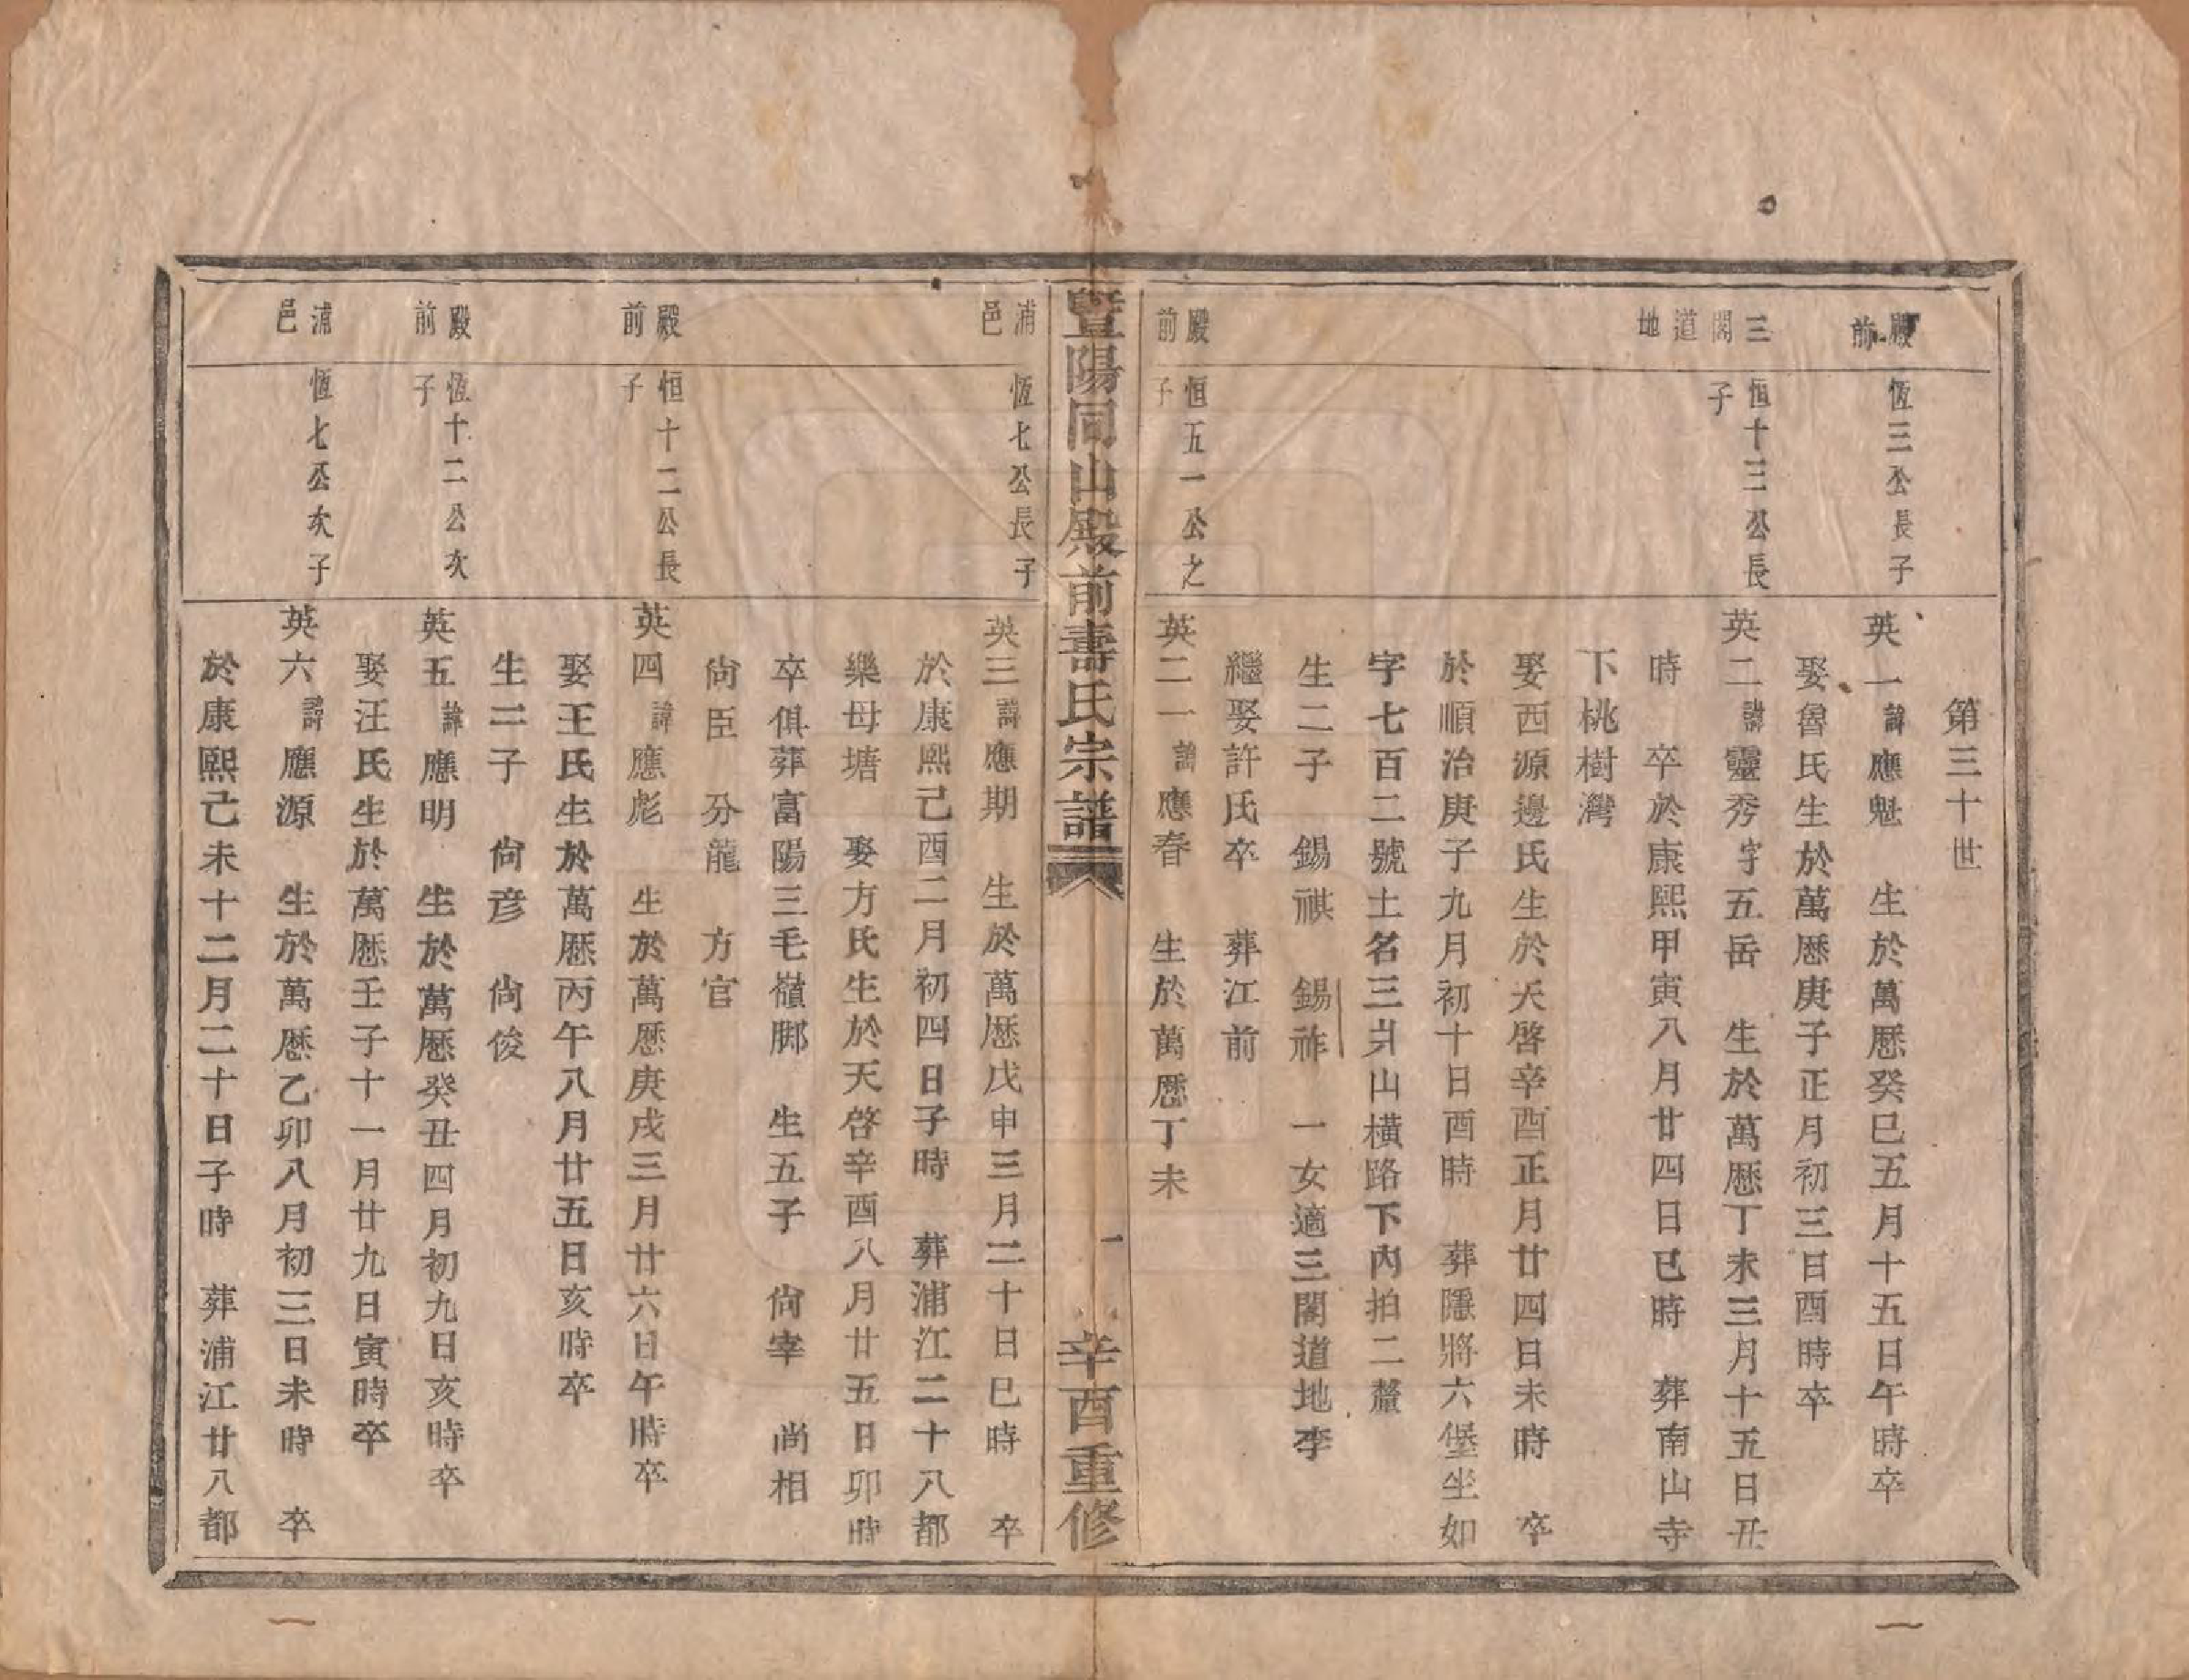 第三十世
殿前
恆三公長子
英一諱應魁　生於萬歷癸巳五月十五日午時卒
娶魯氏生於萬歷庚子正月初三日酉時卒
三閣道地
恒十三公長子
英二諱靈秀字五岳　生於萬歷丁未三月十五日丑
時　卒於康熙甲寅八月廿四日巳時　葬南山寺
下桃樹灣
娶西源邊氏生於天啓辛酉正月廿四日未時　卒
於順治庚子九月初十日酉時　葬隱將六堡坐如
字七百二號土名三爿山橫路下內拍二釐
生二子　錫祺　錫祚　一女適三閣道地李
繼娶許氏卒　葬江前
殿前
恒五一公之子
英二一諱應春　生於萬歷丁未
暨陽同山殿前壽氏宗譜
一
辛酉重修
浦邑
恆七公長子
英三諱應期　生於萬歷戊申三月二十日巳時　卒
於康熙己酉二月初四日子時　葬浦江二十八都
樂母塘　娶方氏生於天啓辛酉八月廿五日卯時
卒俱葬富陽三毛嶺脚　生五子　尙宰　尚相
尙臣　分龍　方官
殿前
恒十二公長子
英四諱應彪　生於萬歷庚戌三月廿六日午時卒
娶王氏生於萬歷丙午八月廿五日亥時卒
生二子　尙彥　尙俊
殿前
恆十二公次子
英五諱應明　生於萬歷癸丑四月初九日亥時卒
娶汪氏生於萬歷壬子十一月廿九日寅時卒
浦邑
恆七公次子
英六諱應源　生於萬歷乙卯八月初三日未時　卒
於康熙己未十二月二十日子時　葬浦江廿八都